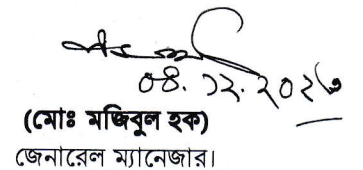 ০৪.১২.২০২৩
(মোঃ মজিবুল হক)
জেনারেল ম্যানেজার।